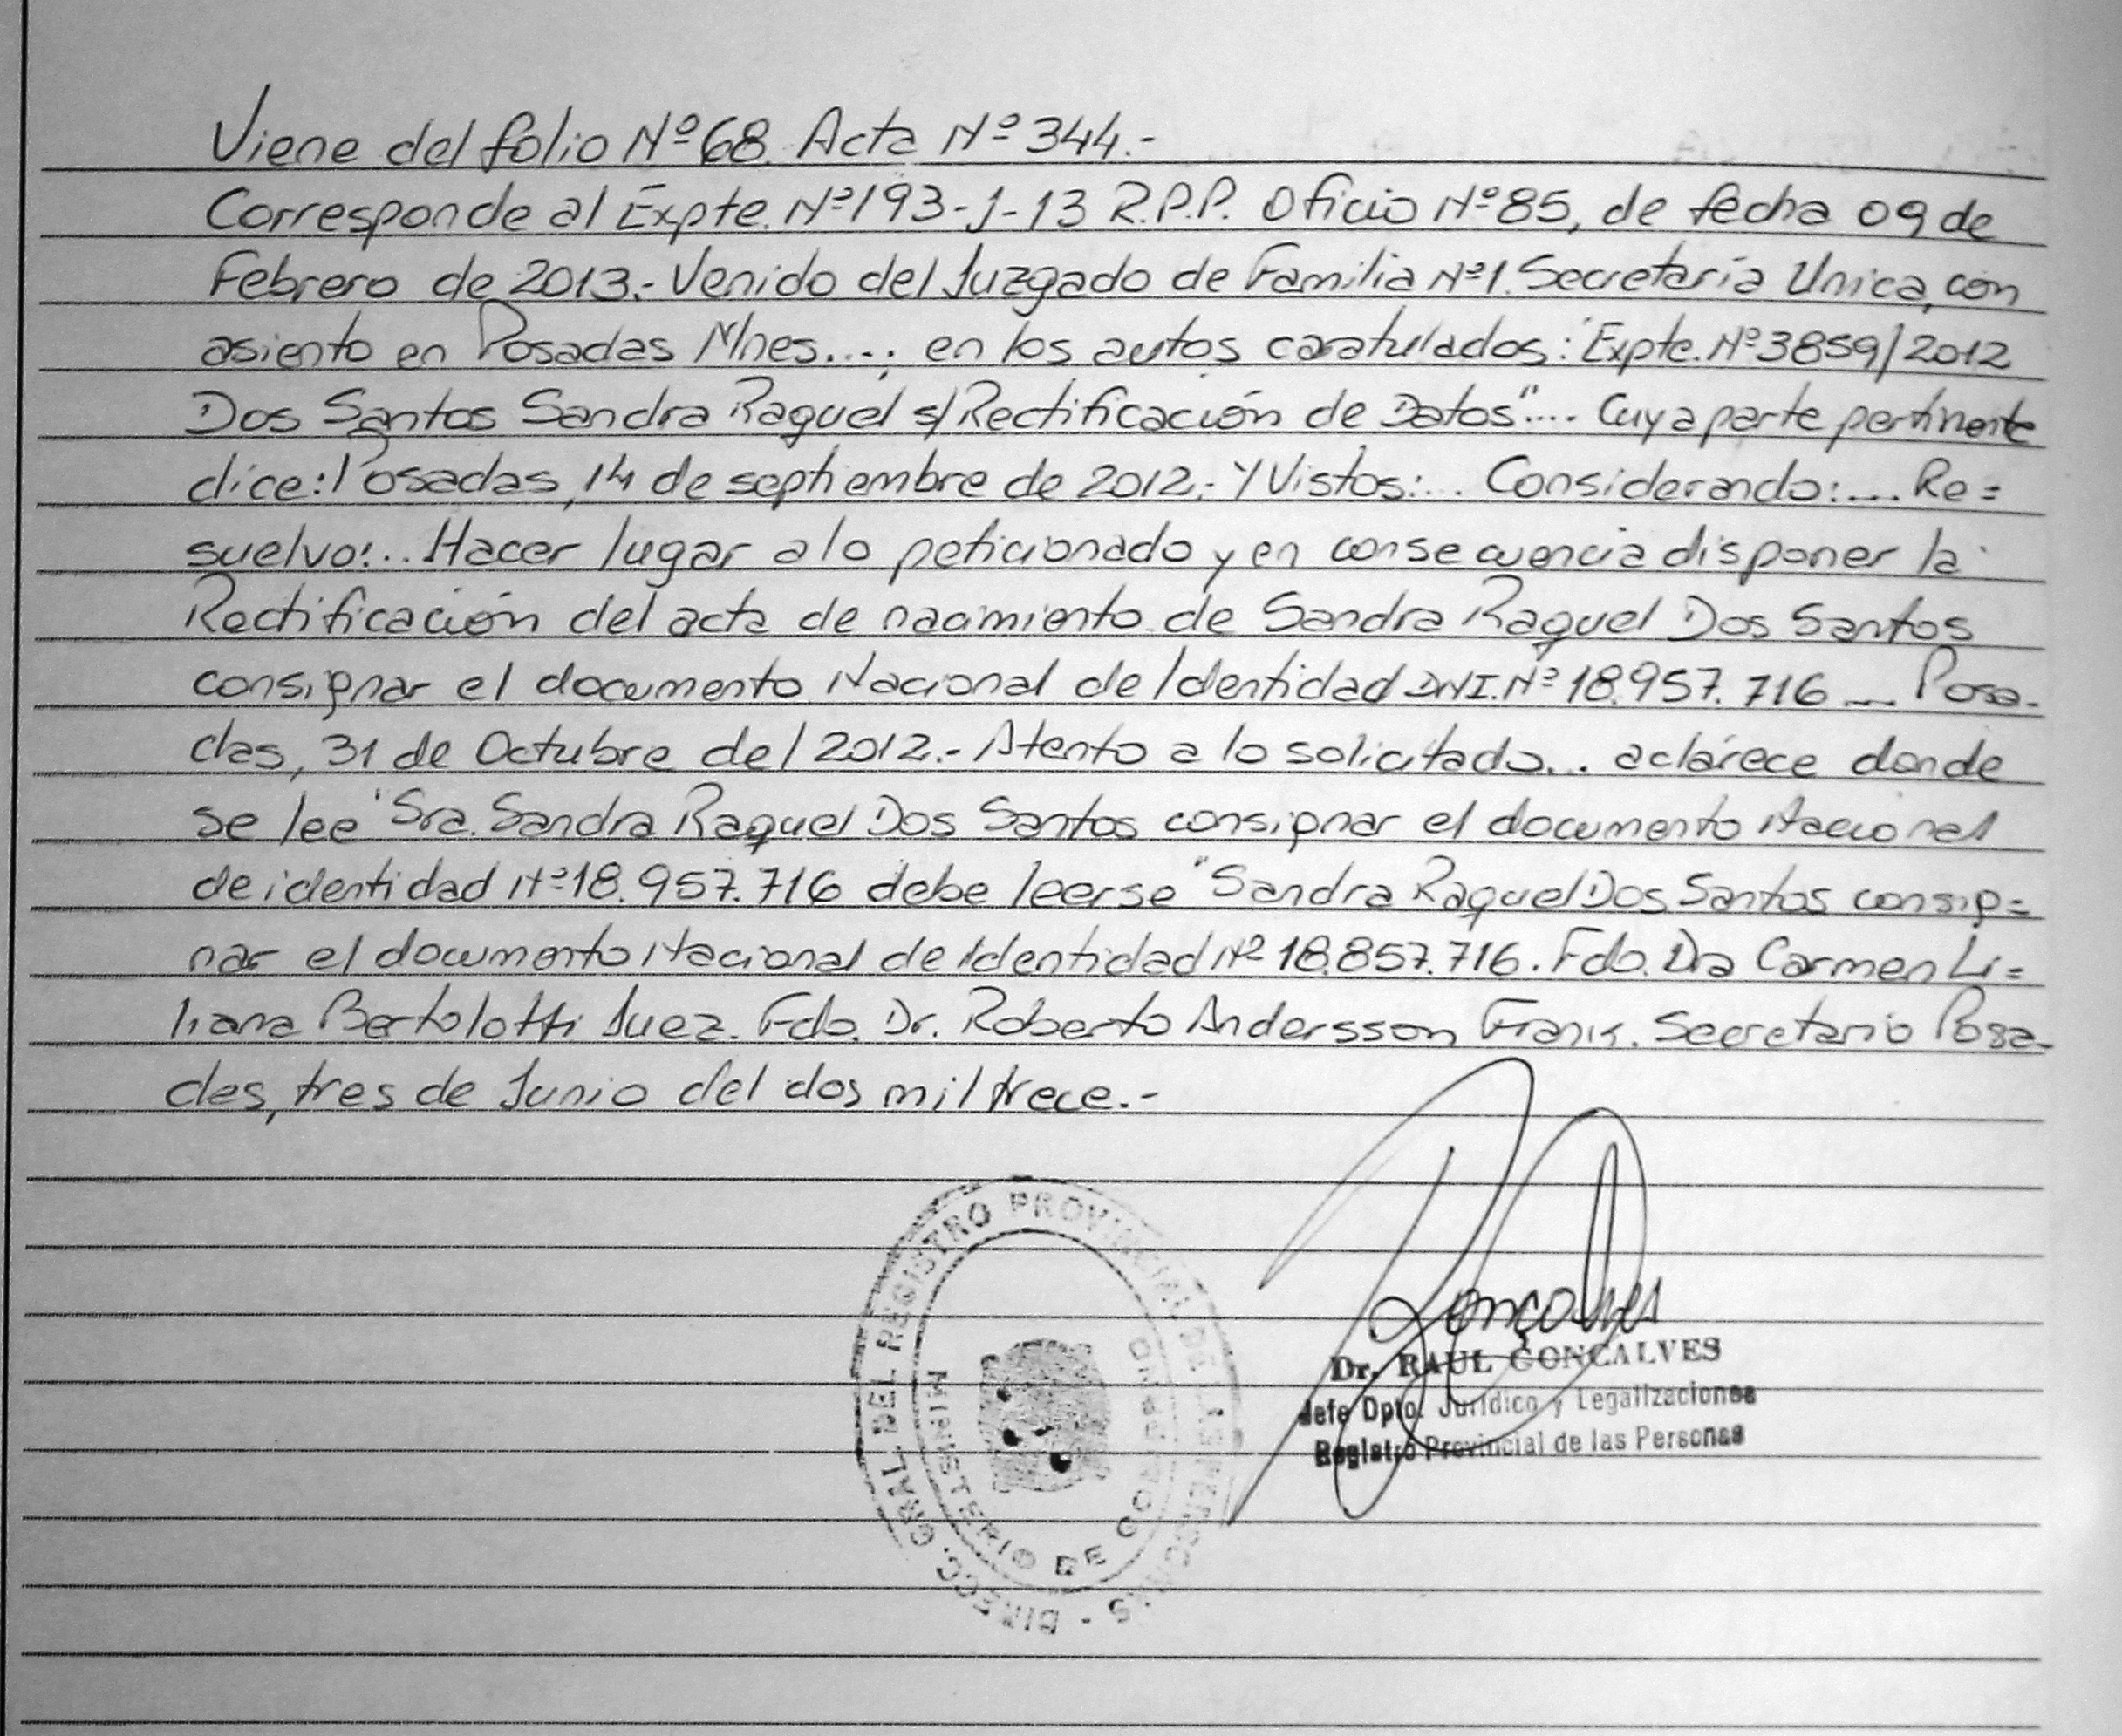 Viene del folio Nº 68. Acta Nº 344.-
Corresponde al Expte. Nº 193-J-13 R.P.P. Oficio Nº 85, de fecha 09 de
Febrero de 2013.- Venido del Juzgado de Familia Nº 1. Secretaría Unica, con
asiento en Posadas Mnes....; en los autos caratulados: "Expte. Nº 3859/2012
Dos Santos Sandra Raquel s/ Rectificación de Datos".... Cuya parte pertinente
dice: Posadas, 14 de septiembre de 2012.- Y Vistos:... Considerando:.... Re=
suelvo:... Hacer lugar a lo peticionado y en consecuencia disponer la
Rectificación del acta de nacimiento de Sandra Raquel Dos Santos
consignar el documento Nacional de Identidad DNI. Nº 18.957.716 .... Posa-
das, 31 de Octubre del 2012.- Atento a lo solicitado... aclárece donde
se lee "Sra. Sandra Raquel Dos Santos consignar el documento Nacional
de identidad Nº 18.957.716 debe leerse "Sandra Raquel Dos Santos consig=
nar el documento Nacional de Identidad Nº 18.857.716. Fdo. Dra Carmen Li=
liana Bertolotti Juez. Fdo. Dr. Roberto Andersson Frank. Secretario Posa-
das, tres de Junio del dos mil trece.-
DIRECC. GRAL DEL REGISTRO PROVINCIAL DE LAS PERSONAS -
MINISTERIO DE GOBIERNO
Gonçalves
Dr. RAUL GONCALVES
Jefe Dpto. Jurídico y Legalizaciones
Registro Provincial de las Personas